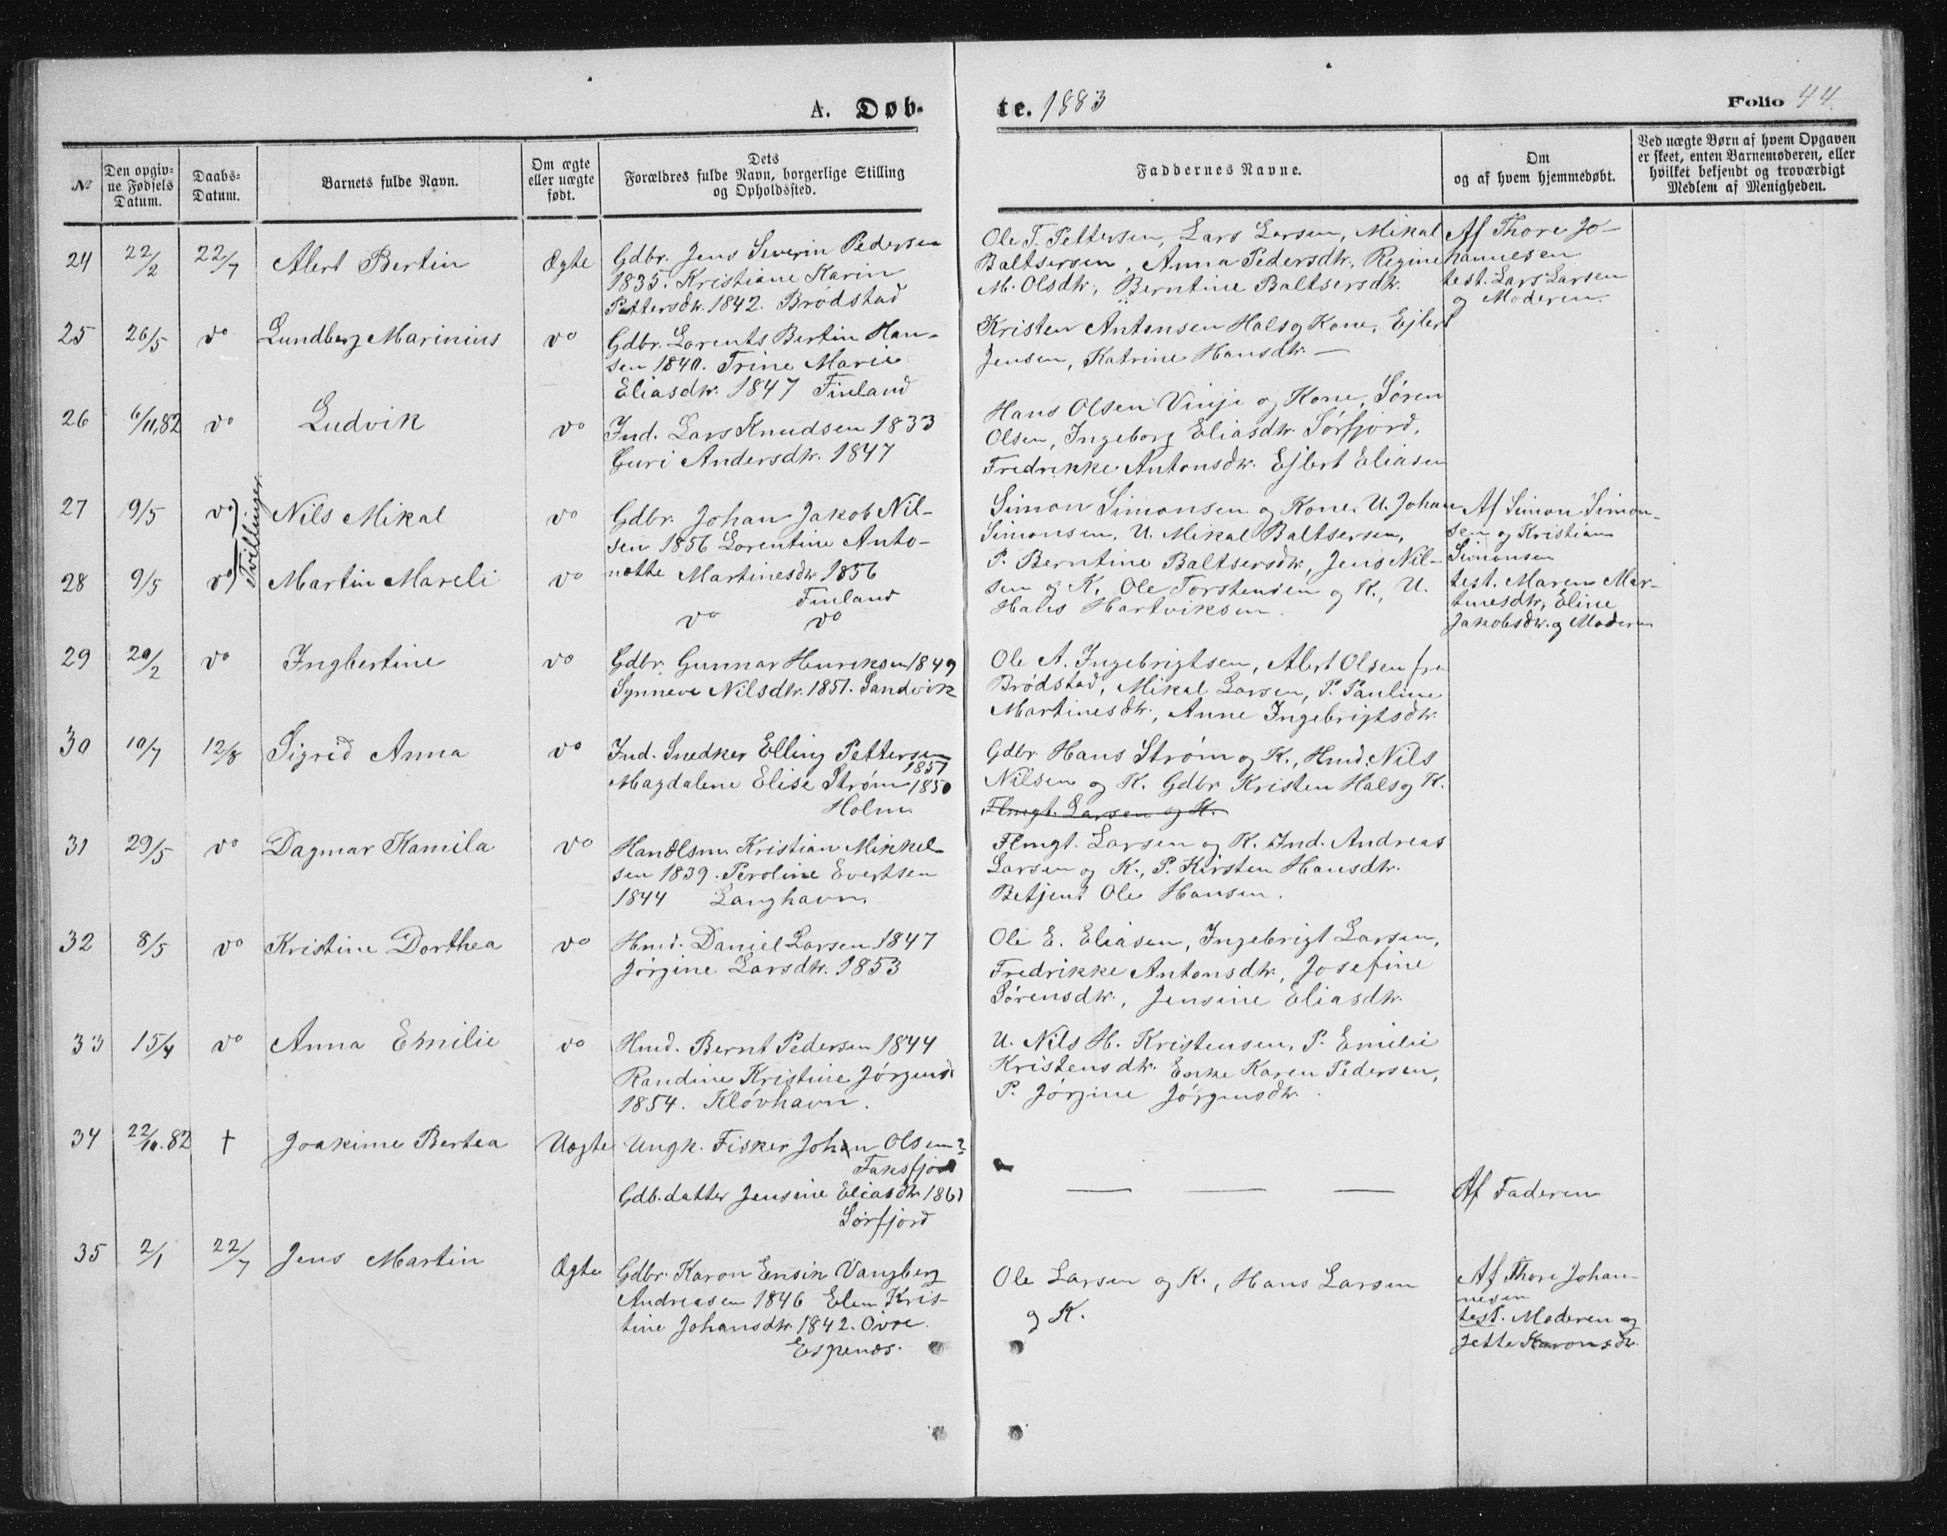 A. Døb- te. 1883 Folio 44.
№
Den opgiv-
ne Fødsels
Datum.
Daabs-
Datum.
Barnets fulde Navn.
Om ægte
eller uægte
født.
Dets
Forældres fulde Navn, borgerlige Stilling
og Opholdssted.
Faddernes Navne.
Om
og af hvem hjemmedøbt.
Ved uægte Børn af hvem Opgaven
er skeet, enten Barnemoderen, eller
hvilket bekjendt og troværdigt
Medlem af Menigheden.
24 22/2 22/7 Alert Bertin Ægte
Gdbr. Jens Severin Pedersen
1835. Kristiane Karin
Pettersdtr. 1842. Brødstad
Ole T. Pettersen, Lars Larsen, Mikal
Baltsersen, Anna Pedersdtr, Regine
M. Olsdtr, Berntine Baltsersdtr.
Af Thore Jo-
hannesen
test. Lars Larsen
og Moderen
25 26/5 do Lundberg Marinius do
Gdbr. Lorents Bertin Han-
sen 1840. Trine Marie
Eliasdtr. 1847 Finland
Kristen Antonsen Hals og Kone, Ejlert
Jensen, Katrine Hansdtr. —
26 6/11.82 do Ludvik do
Ind. Lars Knudsen 1833
Guri Andersdtr. 1847
Hans Olsen Vinje og Kone, Søren
Olsen, Ingeborg Eliasdtr. Sørfjord,
Fredrikke Antonsdtr. Ejlert Eliasen
27 9/5 do Tvillinger. Nils Mikal do
Gdbr. Johan Jakob Nil-
sen 1856 Lorentine Anto-
nette Martinesdtr 1856
Finland
Simon Simonsen og Kone, U. Johan
Simonsen, U. Mikal Baltsersen,
P. Berntine Baltsersdtr, Jens Nil-
sen og K, Ole Torstensen og K., U.
Hans Hartviksen.
Af Simon Simon-
sen og Kristian
Simonsen
test. Maren Mar-
tinesdtr, Eline
Jakobsdtr. og Moderen
28 9/5 do Martin Mareli do
do do
29 20/2 do Ingbertine do
Gdbr. Gunnar Henriksen 1849
Synneve Nilsdtr. 1851. Sandvik
Ole A. Ingebrigtsen, Alert Olsen fra
Brødstad, Mikal Larsen, P. Pauline
Martinesdtr., Anne Ingebrigtsdtr
30 10/7 12/8 Sigrid Anna do
Ind. Snedker Elling Pettersen
1851
Magdalene Elise Strøm 1850
Holm
Gdbr Hans Strøm og K., Hmd. Nils
Nilsen og K. Gdbr Kristen Hals og K.
Flmgt. Larsen og K.
31 29/5 do Dagmar Kamila do
Handlsm. Kristian Mikkel-
sen 1839. Peroline Evertsen
1844 Langhavn.
Flmgt. Larsen og K. Ind. Andreas
Larsen og K., P. Kirsten Hansdtr.
Betjent Ole Hansen.
32 8/5 do Kristine Dorthea do
Hmd. Daniel Larsen 1847
Jørgine Larsdtr. 1853
Ole E. Eliasen, Ingebrigt Larsen,
Fredrikke Antonsdtr, Josefine
Sørensdtr, Jensine Eliasdtr.
33 15/4 do Anna Emilie do
Hmd. Bernt Pedersen 1844
Randine Kristine Jørgensd
1854. Kløvhavn.
U. Nils H. Kristensen, P. Emilie
Kristensdtr. Enke Karen Pedersen,
P. Jørgine Jørgensdtr.
34 22/10.82 † Joakime Bertea Uægte
Ungk. Fisker Johan Olsen?
Faksfjord
Gdb.datter Jensine Eliasdtr 1861
Sørfjord
— — —
Af Faderen
35 2/1 22/7 Jens Martin Ægte
Gdbr. Karon Ensin Vangberg
Andreasen 1846 Elen Kris-
tine Johansdtr. 1842. Øvre
Espenæs.
Ole Larsen og K., Hans Larsen
og K.
Af Thore Johan-
nesen
test. Moderen og
Jette Karonsdtr.